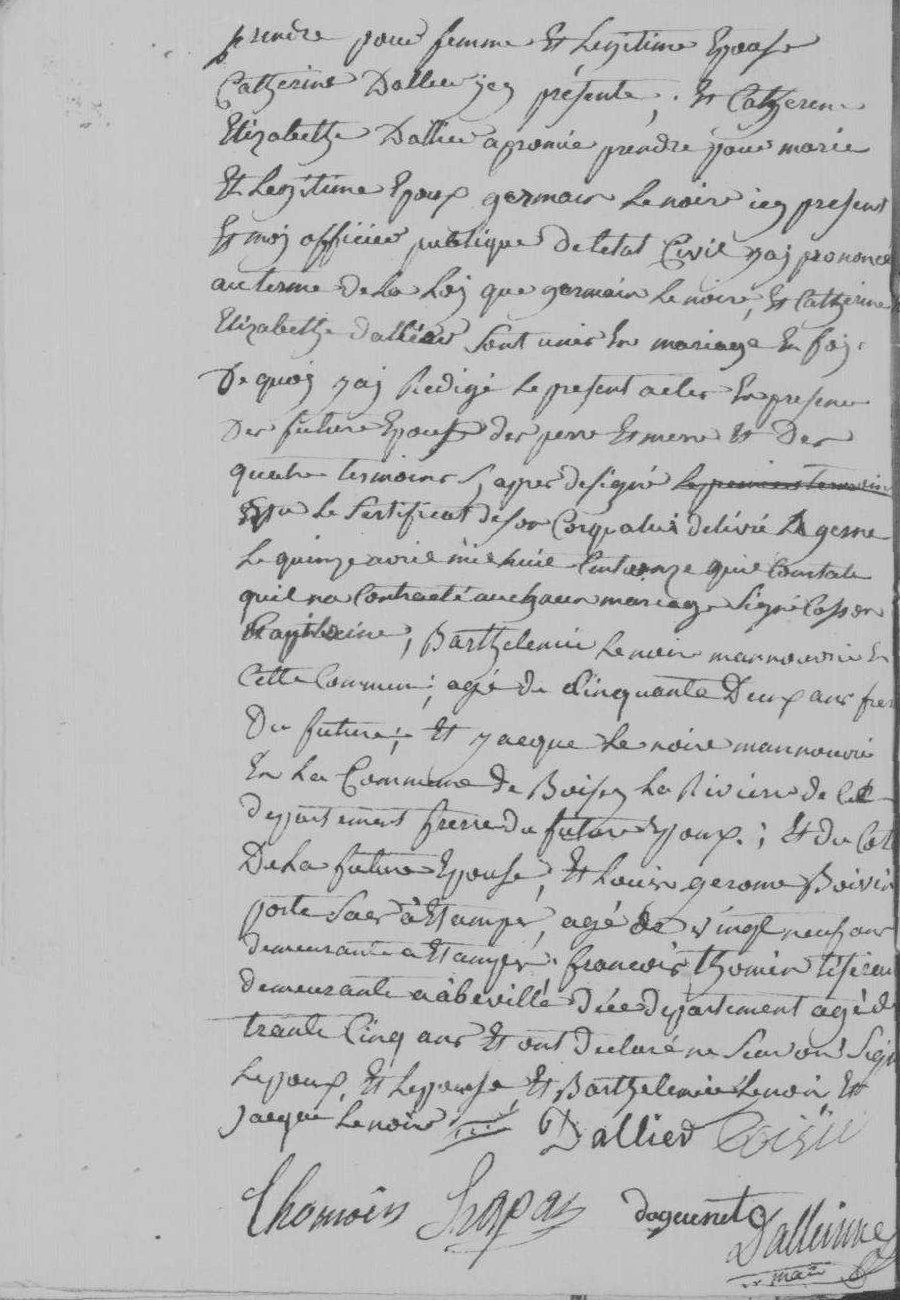 prendre pour femme Et Legitime Epouse
Catherine Dallier jcy présente ; Et Catherine
Elizabethe Dallier a promie prendre pour marie
Et Legitime Epoux germain Lenoire icy present
Et moy officier publique de letat Civil jaj prononcé
au terme de La Loj que germain Lenoire, Et Catherine
Elizabethe dallier sont unie En mariage En foj
De quoj jaj Redigé Le present acte En presence
Des future Epouse des perre Et mere Et Des
quatre temoins, appres designé
Le Sertificat de son Corp delivré
Le quinze avril mil huit Cent onze quil Constate
quil na Contracté auchaun mariage Signé
Capitaine, Barthelemie Lenoir mannouvrié En
Cette Commune ; agé de Cinquante Deux ans frere
Du future ; Et jacque Lenoire mannouvrié
En La Commune de Boissy La Riviere de Ce
departement frerre du future Epoux ; Et du Coté
De La future Epouse, Et Louis gerome Boivin
porte Sacs à Etampes, agé de vingt neuf ans
demeurante a Etampes. francois thomin
demeurante a abeville Dée departement agé de
trante Cinq ans Et ont Declaré ne Savoir Signé
Lepoux, Et Lepouse, Et Barthelemie Lenoir Et
Jacque Lenoire
Dallier
Thomain
daguenet
maire